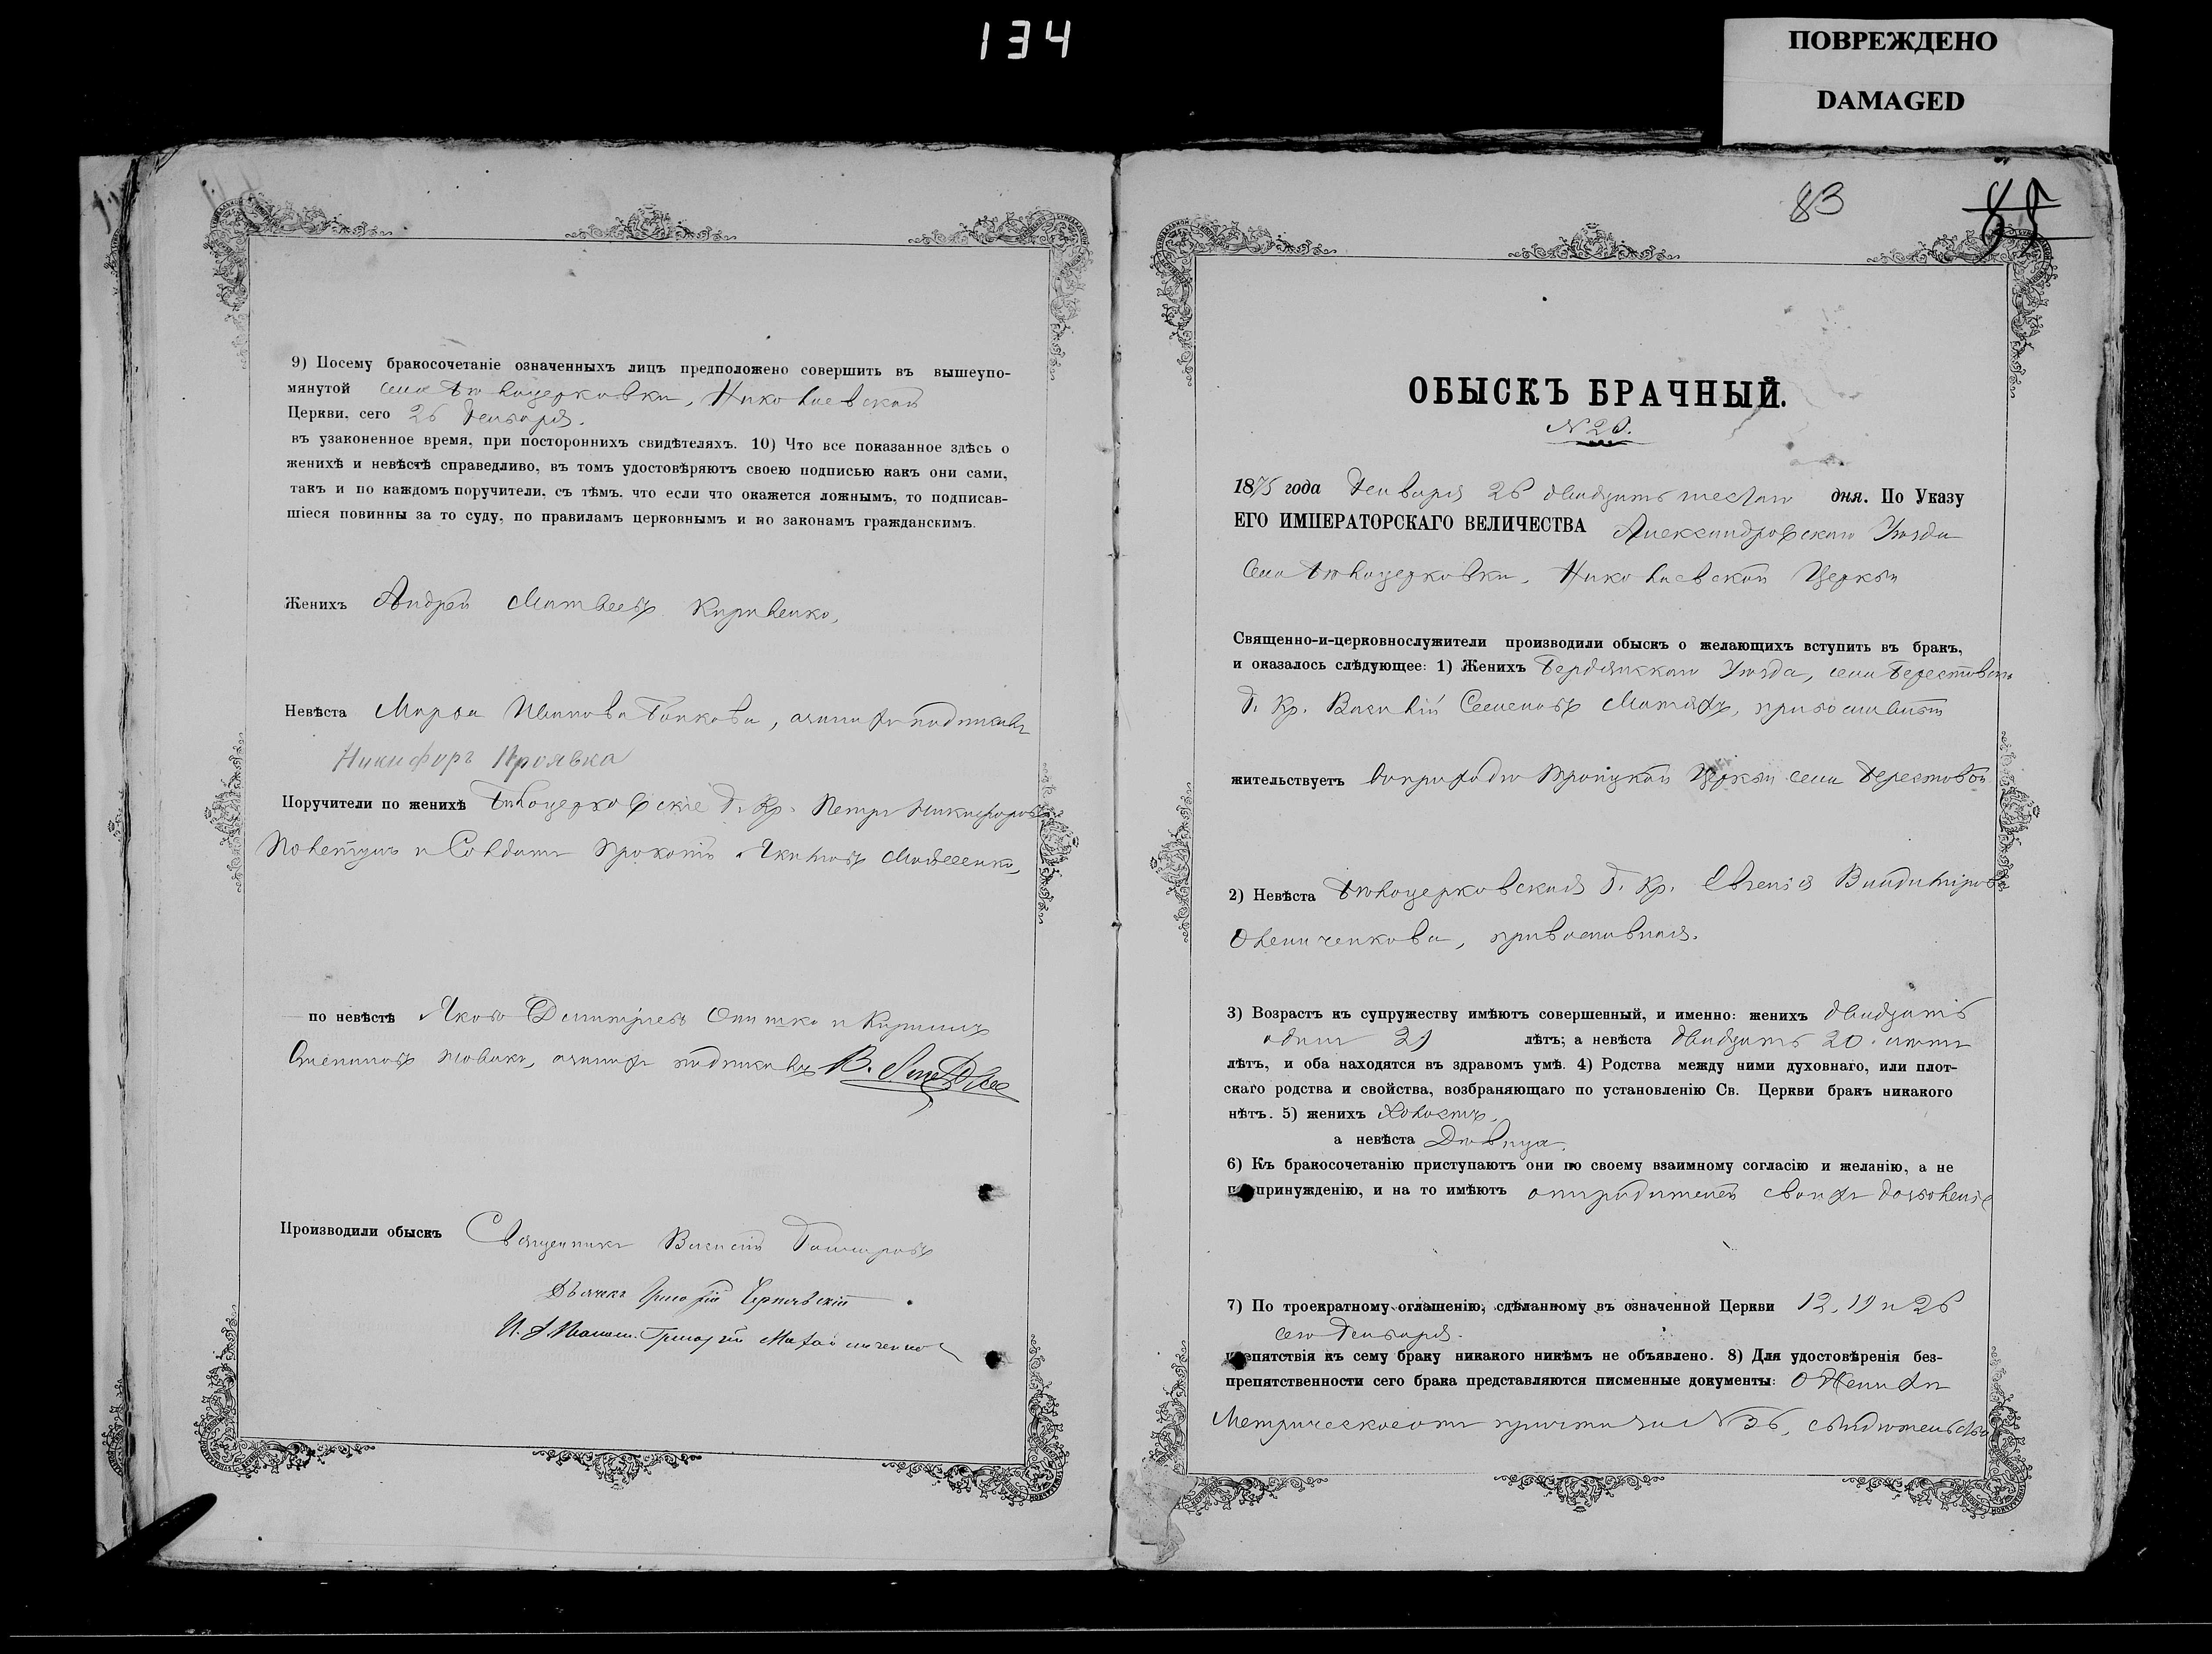 134
ПОВРЕЖДЕНО
DAMAGED
9) Посему бракосочетаніе означенныхъ лицъ предположено совершить въ вышеупо-
мянутой села Бѣлоцерковки, Николаевской
Церкви, сего 26 Генваря.
въ узаконенное время, при постороннихъ свидѣтеляхъ. 10) Что все показанное здѣсь о
женихѣ и невѣстѣ справедливо, въ томъ удостовѣряютъ своею подписью какъ они сами,
такъ и по каждомъ поручители, съ тѣмъ, что если что окажется ложнымъ, то подписав-
шіеся повинны за то суду, по правиламъ церковнымъ и по законамъ гражданскимъ.
Женихъ Андрей Матвеевъ
Невѣста Марѳа Иванова
Никифоръ Проявка
Поручители по женихѣ Бѣлоцерковскіе Г. Кр. Петръ Никифоровъ
и Солдатъ Прокопій
по невѣстѣ Яковъ Димитріевъ и Кириллъ
Производили обыскъ Священникъ Василій
Дьячекъ Григорій
Григорій
83
85
ОБЫСКЪ БРАЧНЫЙ.
N 20.
1875 года Генваря 26 двадцать шестаго дня. По Указу
ЕГО ИМПЕРАТОРСКАГО ВЕЛИЧЕСТВА Александровскаго Уѣзда
Села Бѣлоцерковки, Николаевской Церкви
Священно-и-церковнослужители производили обыскъ о желающихъ вступить въ бракъ,
и оказалось слѣдующее: 1) Женихъ Бердянскаго Уѣзда, села Берестоваго
Г. Кр. Василій Семеновъ православный
жительствуетъ въ приходѣ Троицкой Церкви села Берестовой
2) Невѣста Бѣлоцерковская Г. Кр. Евгенія Владиміров
православная.
3) Возрастъ къ супружеству имѣютъ совершенный, и именно: женихъ двадцать
одинъ 21 лѣтъ; а невѣста двадцать 20. лѣтъ
лѣтъ, и оба находятся въ здравомъ умѣ. 4) Родства между ними духовнаго, или плот-
скаго родства и свойства, возбраняющаго по установленію Св. Церкви бракъ никакого
нѣтъ. 5) женихъ Холостъ,
а невѣста Дѣвица.
6) Къ бракосочетанію приступаютъ они по своему взаимному согласію и желанію, а не
принужденію, и на то имѣютъ отъ родителей своихъ дозволеніе
7) По троекратному оглашенію, сдѣланному въ означенной Церкви 12, 19 и 26
сего Генваря.
препятствія къ сему браку никакого никѣмъ не объявлено. 8) Для удостовѣренія без-
препятственности сего брака представляются писменные документы: О Женихѣ
Метрическое отъ причта за N 36, свидѣтельство